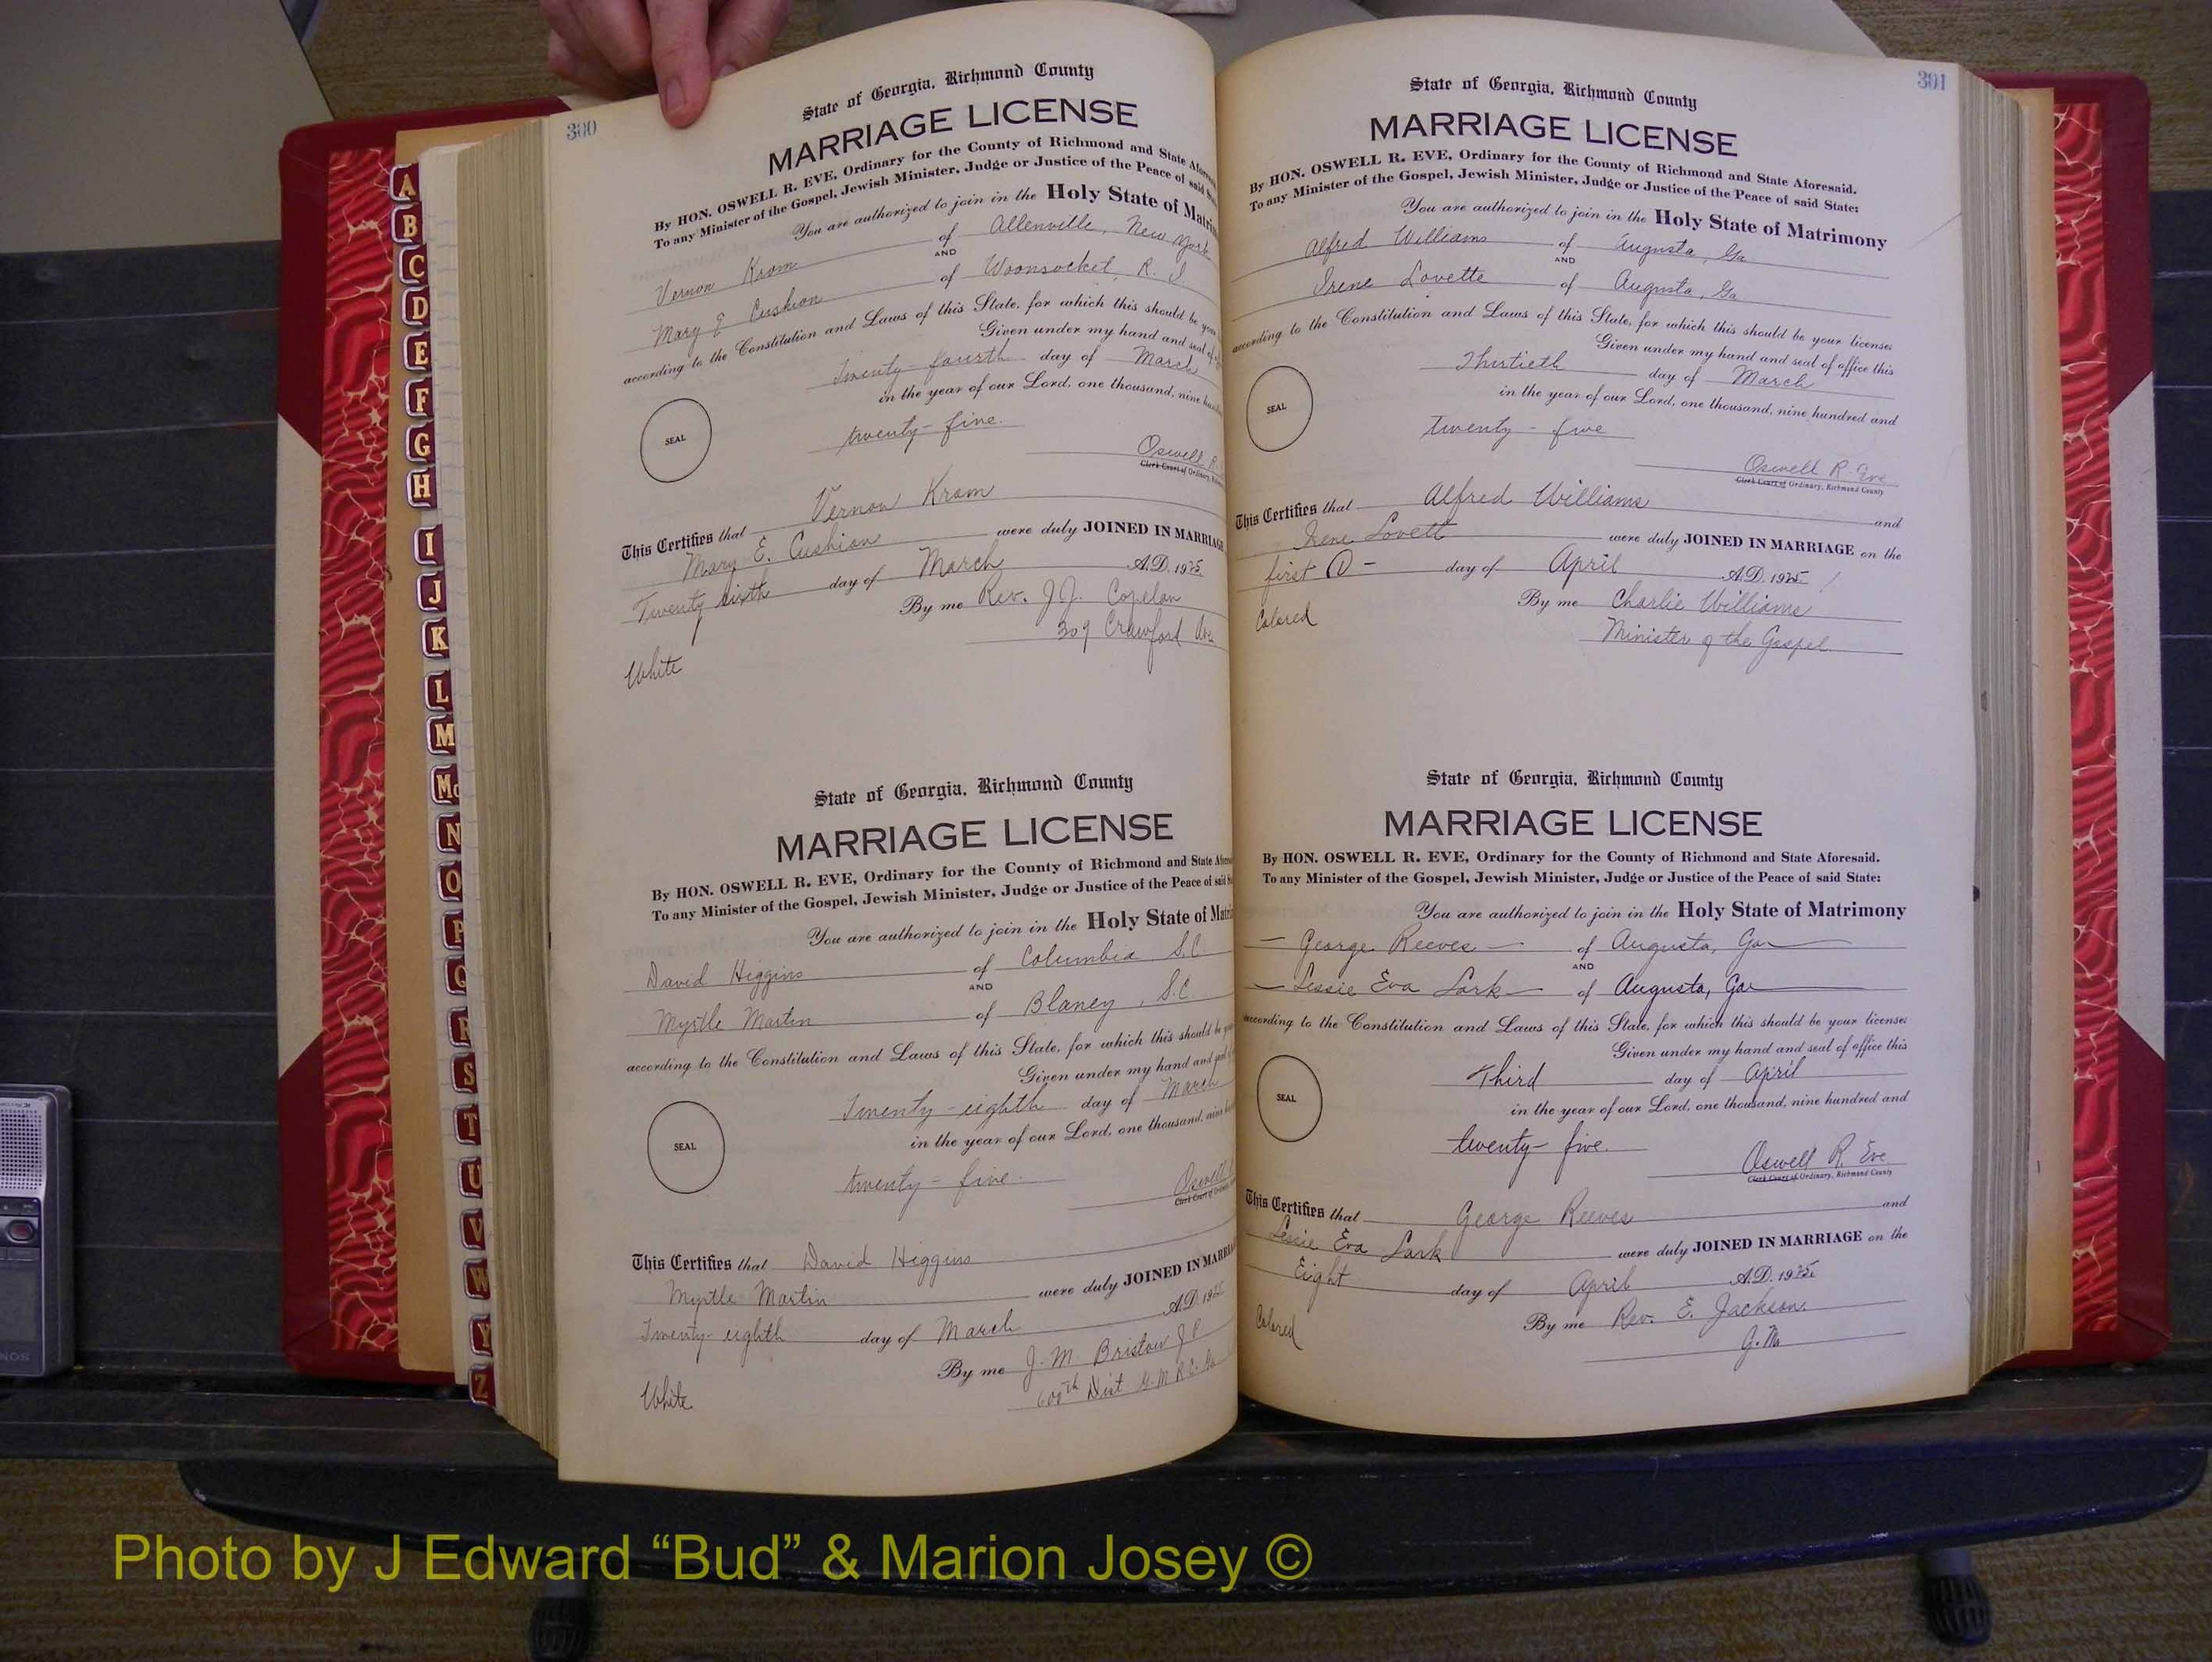 300
State of Georgia, Richmond County
MARRIAGE LICENSE
By HON. OSWELL R. EVE, Ordinary for the County of Richmond and State
To any Minister of the Gospel, Jewish Minister, Judge or Justice of the Peace of said
You are authorized to join in the Holy State of
Vernon Krom of Allenville, New York
AND
Mary E Cushion of Woonsocket, R. I
according to the Constitution and Laws of this State, for which this should be
Given under my hand and seal
Twenty fourth day of March
in the year of our Lord, one thousand, nine
twenty-five.
SEAL
Oswell R.
Clerk Court of
This Certifies that Vernon Krom
Mary E. Cushion were duly JOINED IN MARRIAGE
Twenty sixth day of March A.D. 1925
By me Rev. J.J. Copelan
309 Crawford Ave
White
State of Georgia, Richmond County
MARRIAGE LICENSE
By HON. OSWELL R. EVE, Ordinary for the County of Richmond and State
To any Minister of the Gospel, Jewish Minister, Judge or Justice of the Peace of said
You are authorized to join in the Holy State of
David Higgins of Columbia S.C.
AND
Myrtle Martin of Blaney, S.C.
according to the Constitution and Laws of this State, for which this should be
Given under my hand and
Twenty-eighth day of March
in the year of our Lord, one thousand,
twenty-five.
SEAL
Oswell
Clerk Court of
This Certifies that David Higgins
Myrtle Martin were duly JOINED IN
Twenty-eighth day of March A.D. 192
By me J. M. Bristow J P
600th Dist G. M R. C. Ga
White
301
State of Georgia, Richmond County
MARRIAGE LICENSE
By HON. OSWELL R. EVE, Ordinary for the County of Richmond and State Aforesaid.
To any Minister of the Gospel, Jewish Minister, Judge or Justice of the Peace of said State:
You are authorized to join in the Holy State of Matrimony
Alfred Williams of Augusta, Ga
AND
Irene Lovette of Augusta, Ga
according to the Constitution and Laws of this State, for which this should be your license
Given under my hand and seal of office this
Thirtieth day of March
in the year of our Lord, one thousand, nine hundred and
twenty-five
SEAL
Oswell R. Eve
Clerk Court of Ordinary, Richmond County
This Certifies that Alfred Williams and
Irene Lovett were duly JOINED IN MARRIAGE on the
first day of April A.D. 1925
By me Charlie Williams
Minister of the Gospel
Colored
State of Georgia, Richmond County
MARRIAGE LICENSE
By HON. OSWELL R. EVE, Ordinary for the County of Richmond and State Aforesaid.
To any Minister of the Gospel, Jewish Minister, Judge or Justice of the Peace of said State:
You are authorized to join in the Holy State of Matrimony
George Reeves of Augusta, Ga
AND
Lessie Eva Lark of Augusta, Ga
according to the Constitution and Laws of this State, for which this should be your license
Given under my hand and seal of office this
Third day of April
in the year of our Lord, one thousand, nine hundred and
twenty-five.
SEAL
Oswell R. Eve
Clerk Court of Ordinary, Richmond County
This Certifies that George Reeves and
Lessie Eva Lark were duly JOINED IN MARRIAGE on the
Eight day of April A.D. 1925
By me Rev. E. Jackson
Colored
A
B
C
D
E
F
G
H
I
J
K
L
M
Mc
N
O
P
Q
R
S
T
U
V
W
Y
Z
Photo by J Edward “Bud” & Marion Josey ©